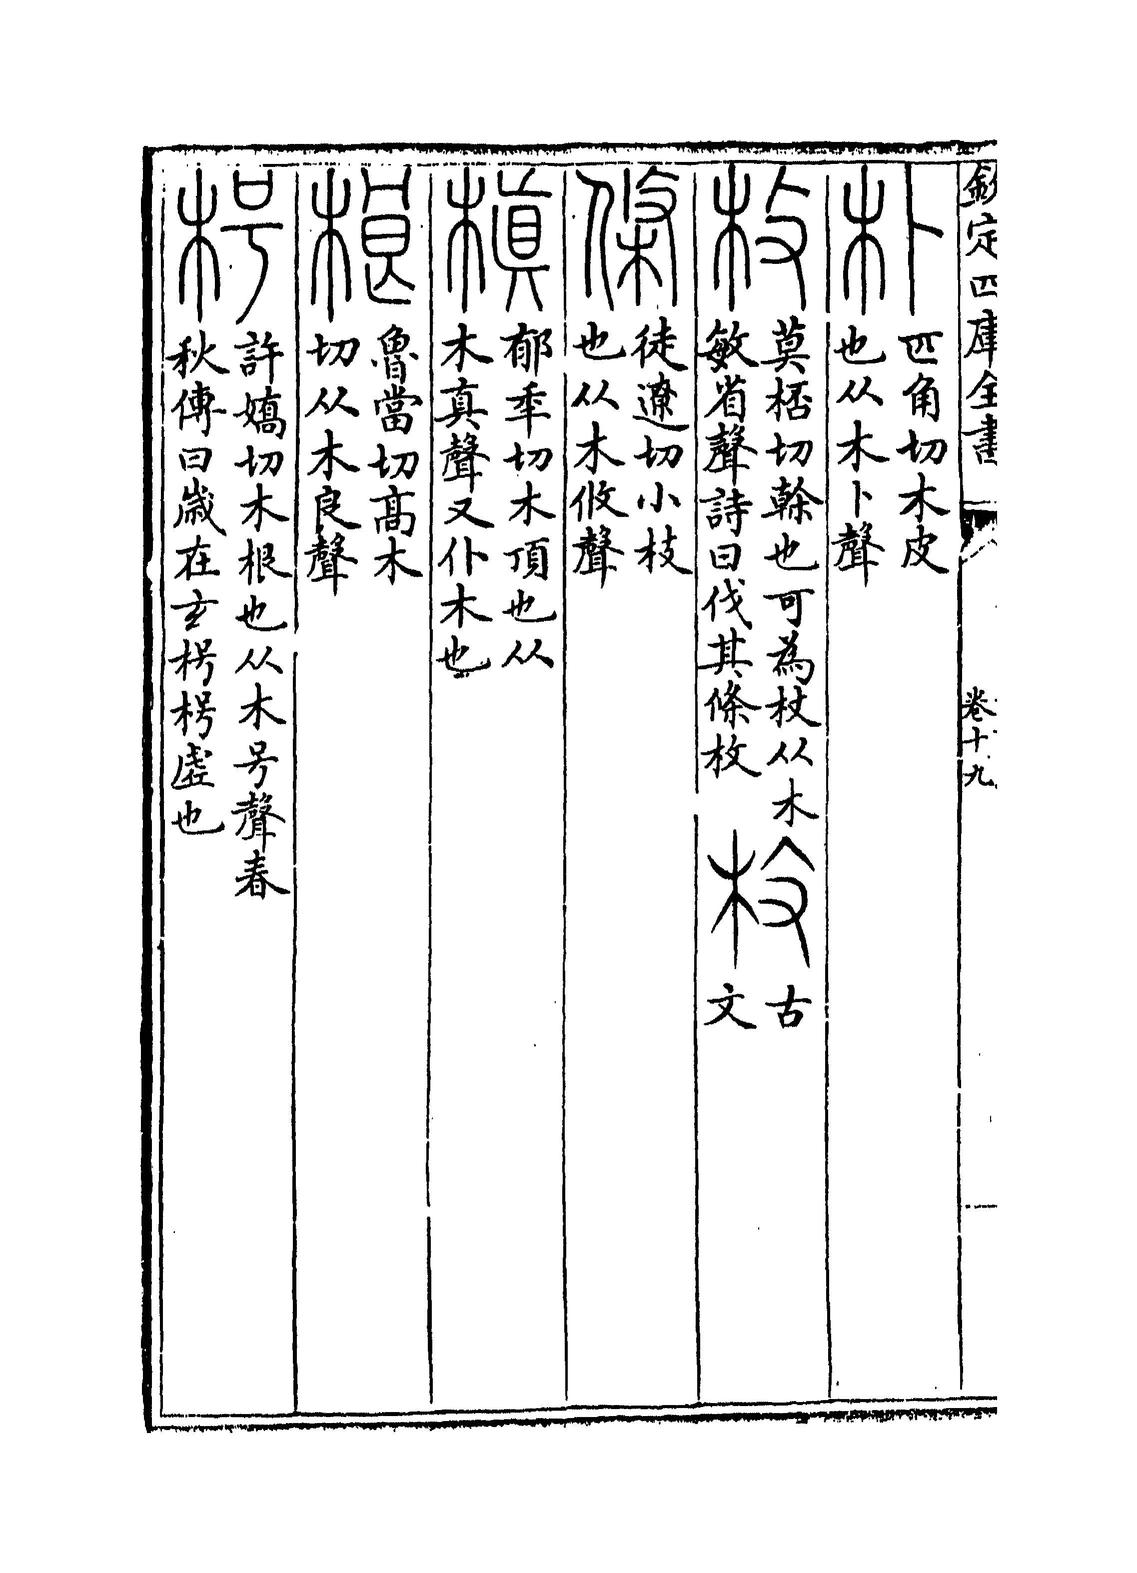 欽定四庫全書
卷十九
朴
匹角切木皮
也从木卜聲
枚
莫桮切榦也可為杖从木
敏省聲詩曰伐其條枚
枚
古
文
條
徒遼切小枝
也从木攸聲
槙
郁秊切木頂也从
木真聲又仆木也
桹
魯當切高木
切从木良聲
枵
許嬌切木根也从木号聲春
秋傳曰歲在玄枵枵虛也